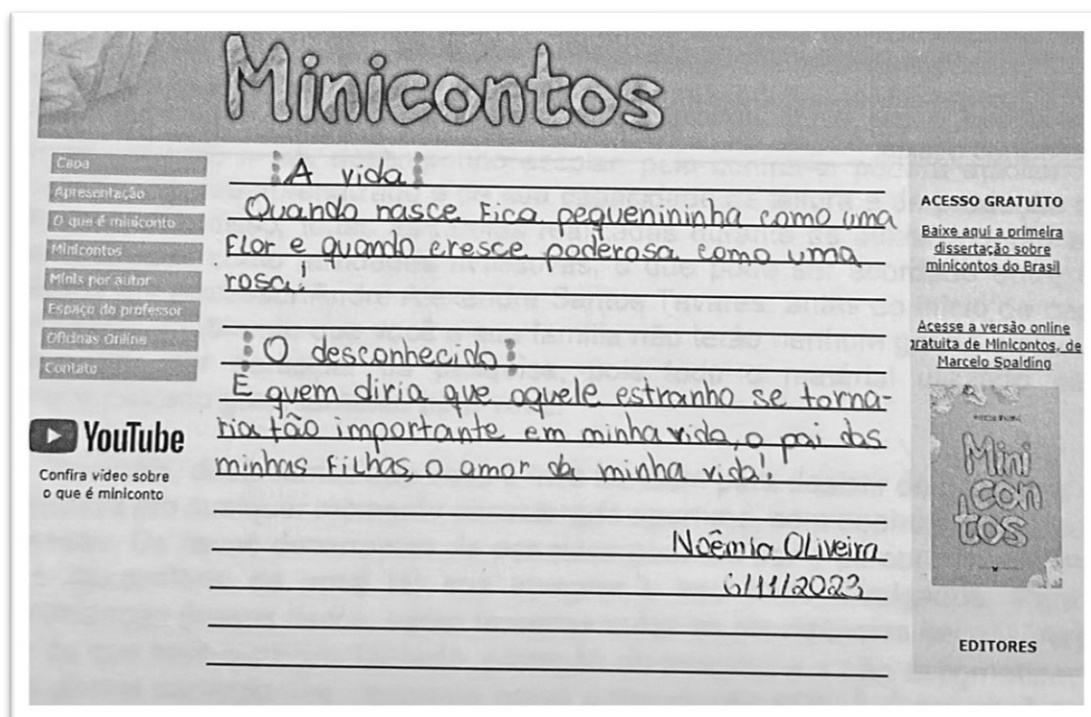 Minicontos
Capa
Apresentação
O que é miniconto
Minicontos
Minis por autor
Espaço do professor
Oficinas Online
Contato
YouTube
Confira vídeo sobre
o que é miniconto
A vida
Quando nasce fica pequenininha como uma
flor e quando cresce poderosa como uma
rosa!
O desconhecido
E quem diria que aquele estranho se torna-
ria tão importante em minha vida, o pai das
minhas filhas, o amor da minha vida!
Noêmia Oliveira
6/11/2023
ACESSO GRATUITO
Baixe aqui a primeira
dissertação sobre
minicontos do Brasil
Acesse a versão online
gratuita de Minicontos, de
Marcelo Spalding
Mini
con
tos
EDITORES